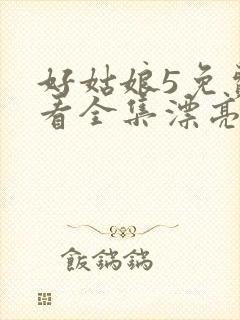 好姑娘5免
看全集漂亮
飯鍋鍋